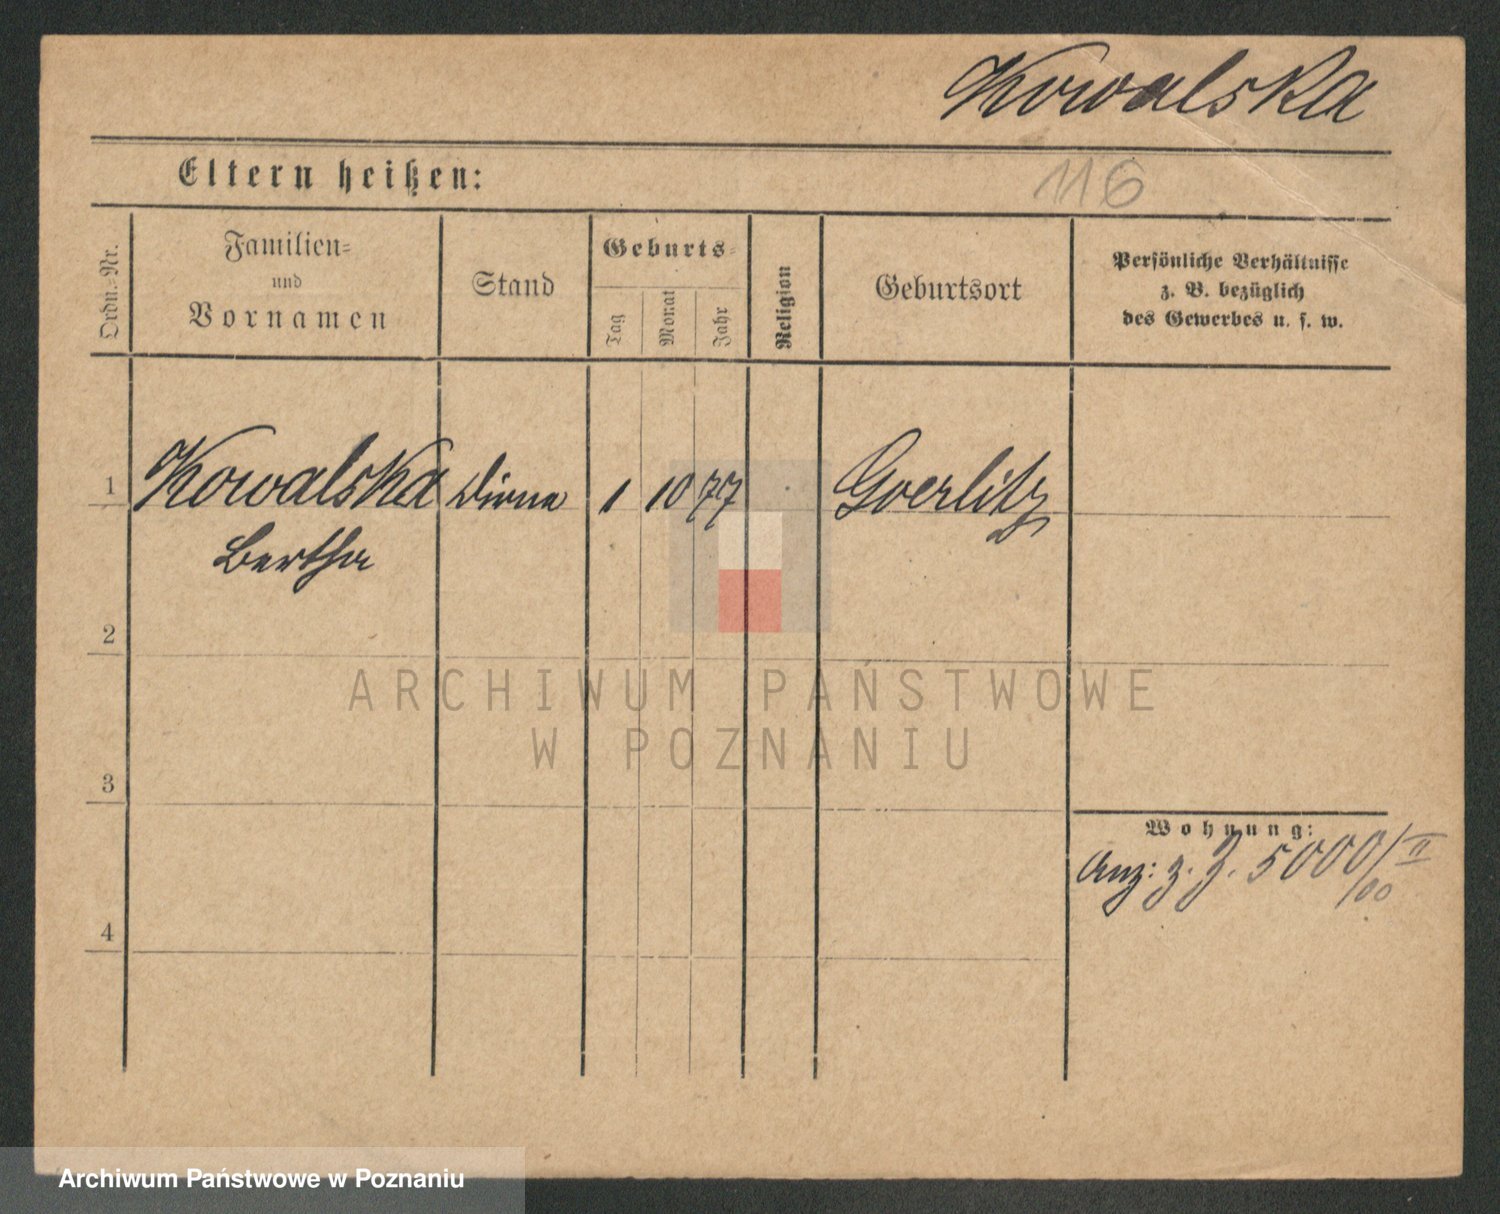 Kowalska
Eltern heißen:
116
Ordn.-Nr.
Familien-
und
Vornamen
Stand
Geburts-
Tag
Monat
Jahr
Religion
Geburtsort
Persönliche Verhältnisse
z. B. bezüglich
des Gewerbes u. s. w.
1
Kowalska
Dirne
1
10
77
Goerlitz
Bertha
2
ARCHIWUM PAŃSTWOWE
W POZNANIU
3
Wohnung:
Anz: z. Z. 5000/II
/00
4
Archiwum Państwowe w Poznaniu